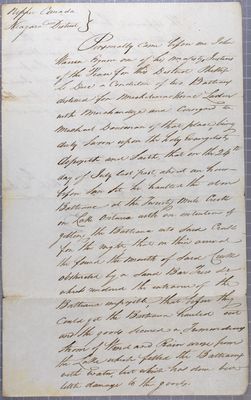 Upper Canada
Niagara District }
Personally came before me John
Warren Esquire one of his majestys Justices
of the Peace for this District Phillip
a Conductor of two Batteaux
with Merchandize and
Michael Donovan of that place being
duly Sworn upon the holy Evangelist
deposeth and Saith, that on the 24th
day of July last past about an hour
before Sun Set he hauled the above
Batteaux at the Twenty Mile Creek
on Lake Ontario with an intention of
getting the Batteaux into Said Creek
for the night, that on their arrival
the found the mouth of Said Creek
obstructed by a Sand Bar
which rendered the entrance of the
Batteaux impossible, that before they
could get the Batteaux hauled out
and the goods Secured a Tremendous
Storm of Wind and Rain arose from
the Lake which filled the Batteaux
with Water, but which had done but
little damage to the goods.